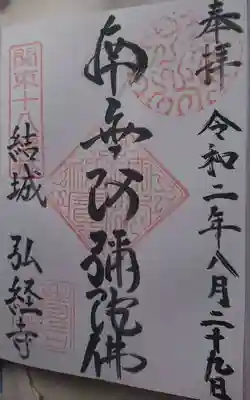 奉拝
令和二年八月二十九日
南無阿彌陀佛
關東十八
結城 弘経寺